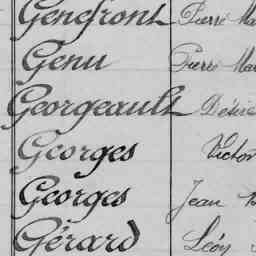 Genefront Pierre
Genu Pierre
Georgeault Désiré
Georges Victor
Georges Jean
Gérard Léon